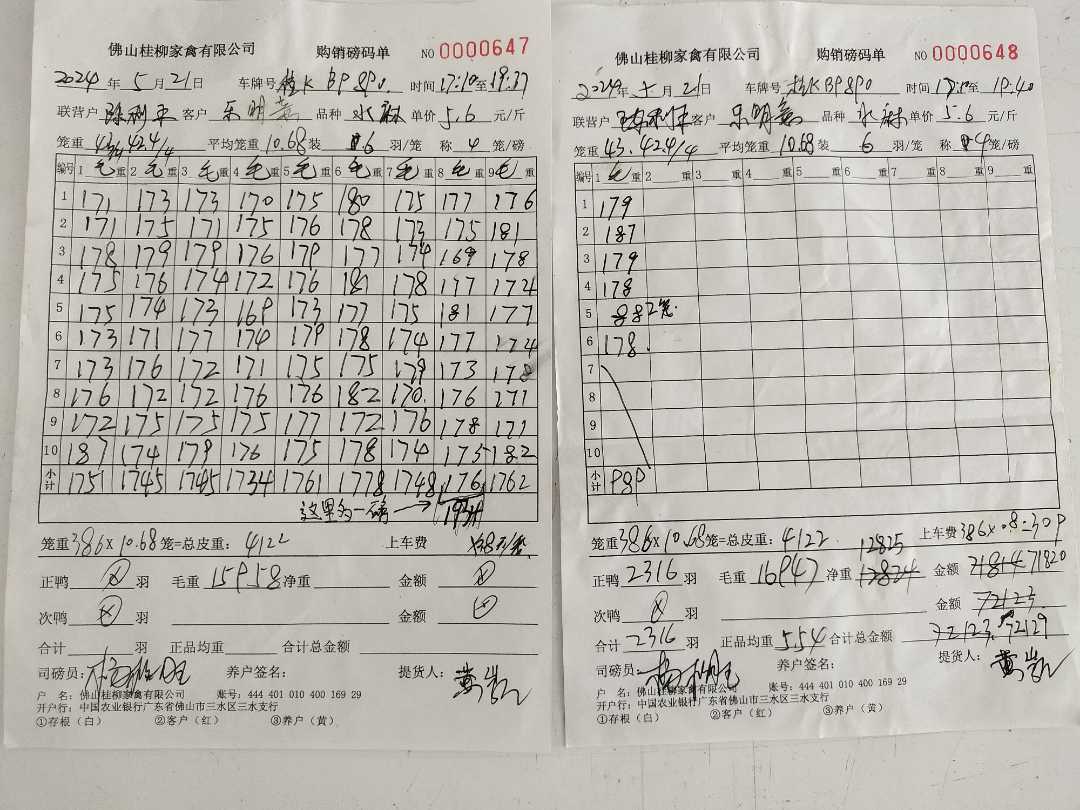 佛山桂柳家禽有限公司 购销磅码单 NO 0000647
2024年5月21日 车牌号 桂K BP890. 时间17:10至19:37
联营户 客户 乐明 品种 水麻 单价 5.6 元/斤
笼重 43, 42.4/4 平均笼重 10.68 装 6 羽/笼 称 4 笼/磅
编号 1 毛重 2 毛重 3 毛重 4 毛重 5 毛重 6 毛重 7 毛重 8 毛重 9 毛重
1 171 173 173 170 175 180 175 177 176
2 171 175 171 175 176 178 173 175 181
3 178 179 179 176 179 177 174 169 178
4 175 176 174 172 176 181 178 177 174
5 175 174 173 169 173 177 175 181 177
6 173 171 177 174 179 178 174 177 174
7 173 176 172 171 175 175 179 173 178
8 176 172 172 176 176 182 170. 176 171
9 172 175 175 175 177 172 176 178 171
10 187 174 179 176 175 178 174 175 182
小计 1751 1745 1745 1734 1761 1778 1748 1762
这里多一磅 → 1934
笼重 386 × 10.68 笼=总皮重: 4122 上车费
正鸭 羽 毛重 15958 净重 金额
次鸭 羽 金额
合计 羽 正品均重 合计总金额
司磅员: 养户签名: 提货人: 黄凯
户 名: 佛山桂柳家禽有限公司 账号: 444 401 010 400 169 29
开户行: 中国农业银行广东省佛山市三水区三水支行
①存根(白) ②客户(红) ③养户(黄)
佛山桂柳家禽有限公司 购销磅码单 NO 0000648
2024年5月21日 车牌号 桂K BP890 时间 17:10至19:40
联营户 客户 乐明 品种 水麻 单价 5.6 元/斤
笼重 43. 42.4/4 平均笼重 10.68 装 6 羽/笼 称 4 笼/磅
编号 1 毛重 2 重 3 重 4 重 5 重 6 重 7 重 8 重 9 重
1 179
2 187
3 179
4 178
5 2笼.
6 178.
7
8
9
10
小计 989
笼重 386 × 10.68 笼=总皮重: 4122 上车费 386×0.8=309
12825
正鸭 2316 羽 毛重 16947 净重 12824 金额 71814 71820
次鸭 羽 金额 72123
合计 2316 羽 正品均重 5.54 合计总金额 72123. 72129
司磅员: 养户签名: 提货人: 黄凯
户 名: 佛山桂柳家禽有限公司 账号: 444 401 010 400 169 29
开户行: 中国农业银行广东省佛山市三水区三水支行
①存根(白) ②客户(红) ③养户(黄)